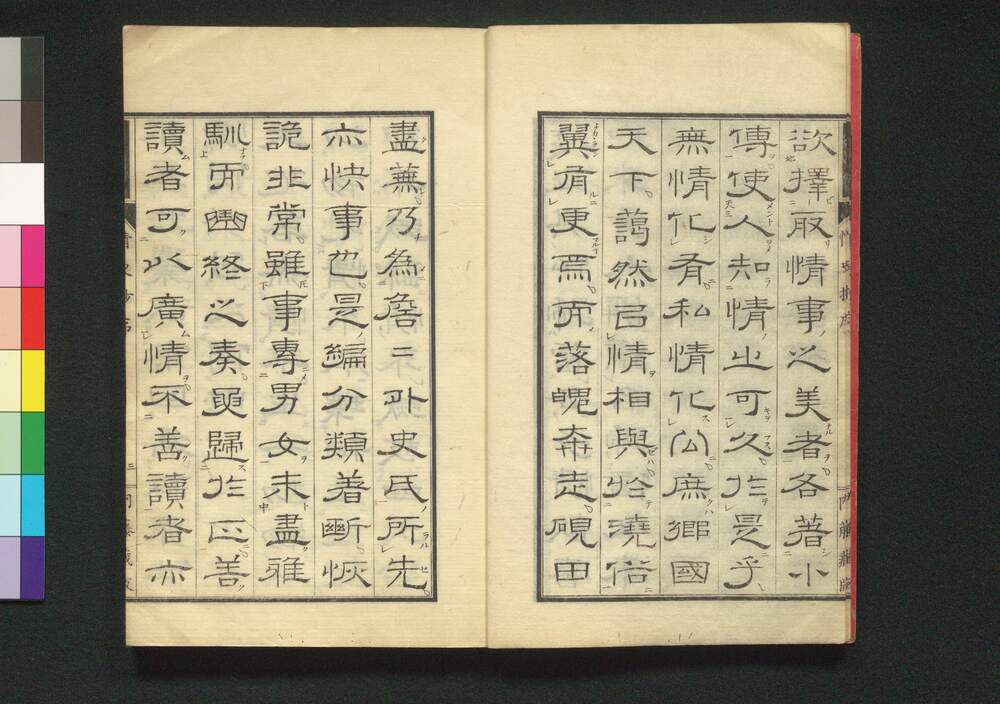 欲擇取情事之美者各著小
傳使人知情之可久於是乎
無情化有私情化公庶鄉國
天下藹然以情相與於澆俗
冀有更焉而落魄奔走硯田
盡蕪乃為詹二外史氏所先
亦快事也是編分類著斷恢
詭非常雖事專男女未盡雅
馴而曲終之奏要歸於正善
讀者可以廣情不善讀者亦
三